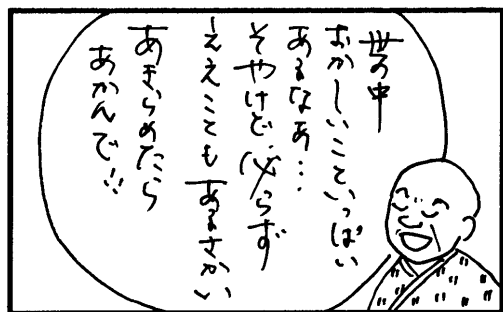 世の中
おかしいこといっぱい
あるなあ…
そやけど、必らず
ええこともあるさかい
あきらめたら
あかんで!!